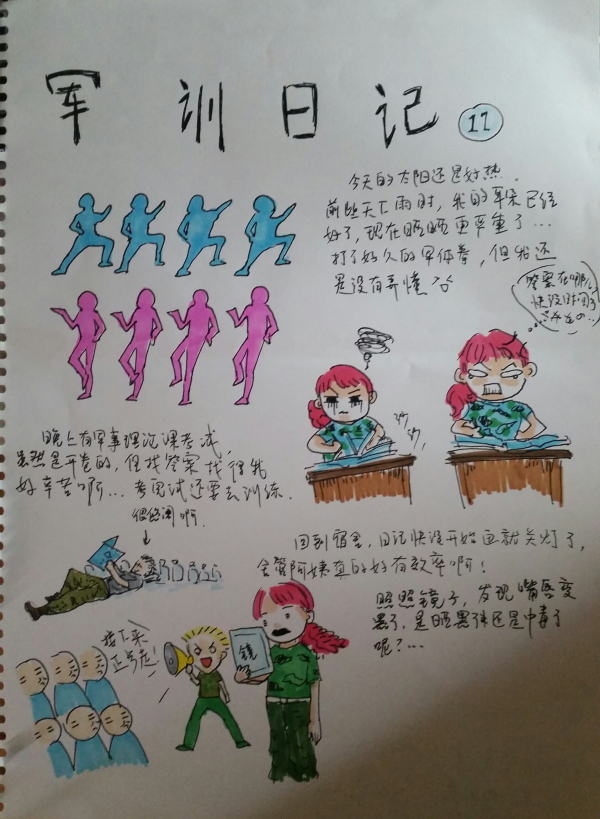 军训日记 11
今天的太阳还是好热。
前些天下雨时，我的耳朵已经
好了，现在晒晒更严重了...
打了好久的军体拳，但我还
是没有弄懂
答案在哪儿
快没时间了
沙
沙
晚上有军事理论课考试，
虽然是开卷的，但找答案找得我
好辛苦啊...考完试还要去训练。
很悠闲啊
回到宿舍，日记快没开始画就关灯了，
舍管阿姨查的好有效率啊！
照照镜子，发现嘴唇变
黑了，是晒黑了还是中毒了
呢？...
接下来
正步走！
镜子